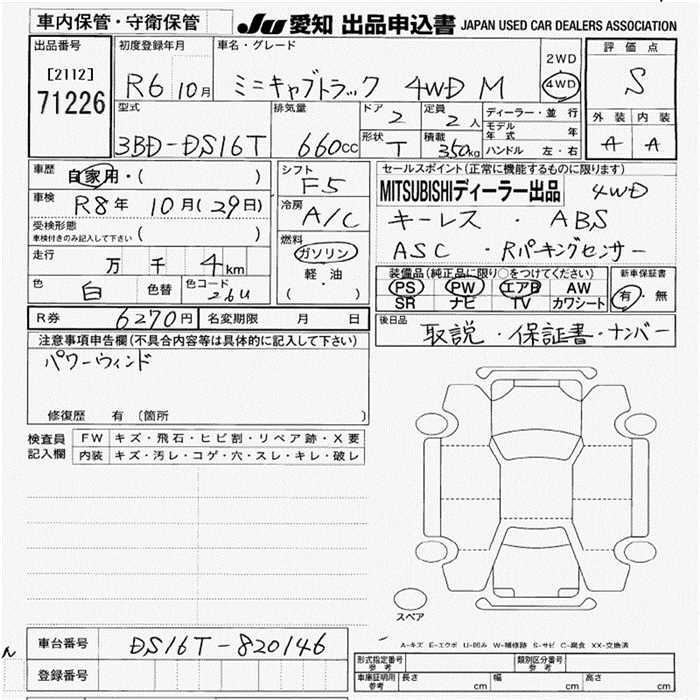 車内保管・守衛保管 JU 愛知 出品申込書 JAPAN USED CAR DEALERS ASSOCIATION
出品番号 初度登録年月 車名・グレード 2WD 評価点
[2112] R6 10月 ミニキャブトラック 4WD M 4WD S
71226 型式 排気量 ドア 2 定員 2人 ディーラー・並行 外装 内装
モデル年式 年
3BD-DS16T 660cc 形状 T 積載 350kg ハンドル 左・右 A A
車歴 自家用・( ) シフト F5 セールスポイント(正常に機能するものに限ります)
車検 R8年 10月(29日) 冷房 A/C MITSUBISHIディーラー出品 4WD
受検形態 車検付きのみ記入して下さい ( ) キーレス ・ ABS
走行 万 千 4km 燃料 ガソリン ASC ・Rパーキングセンサー
軽・油 装備品(純正品に限り○をつけてください) 新車保証書
色 白 色替 色コード 26U ( ) PS PW エアB AW 有・無
SR ナビ TV カワシート
R券 6270円 名変期限 月 日 後日品 取説・保証書・ナンバー
注意事項申告欄(不具合内容等は具体的に記入して下さい)
パワーウィンド
修復歴 有 (箇所 )
検査員 FW キズ・飛石・ヒビ割・リペア跡・X要
記入欄 内装 キズ・汚レ・コゲ・穴・スレ・キレ・破レ
スペア
ん 車台番号 DS16T-820146
A-キズ E-エクボ U-凹み W-補修跡 S-サビ C-腐食 XX-交換済
登録番号 形式指定番号 参考 類別区分番号 参考
車庫証明用 参考 長さ cm 幅 cm 高さ cm